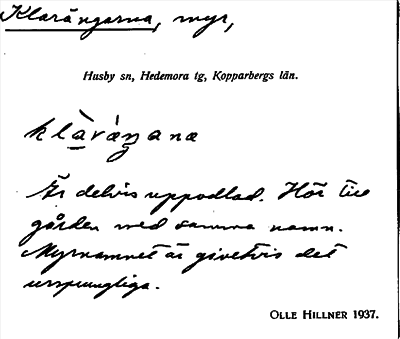 Klarängarna, myr,
Husby sn, Hedemora tg, Kopparbergs län.
klàráŋana
Är delvis uppodlad. Hör till
gården med samma namn.
Myrnamnet är givetvis det
ursprungliga.
OLLE HILLNER 1937.